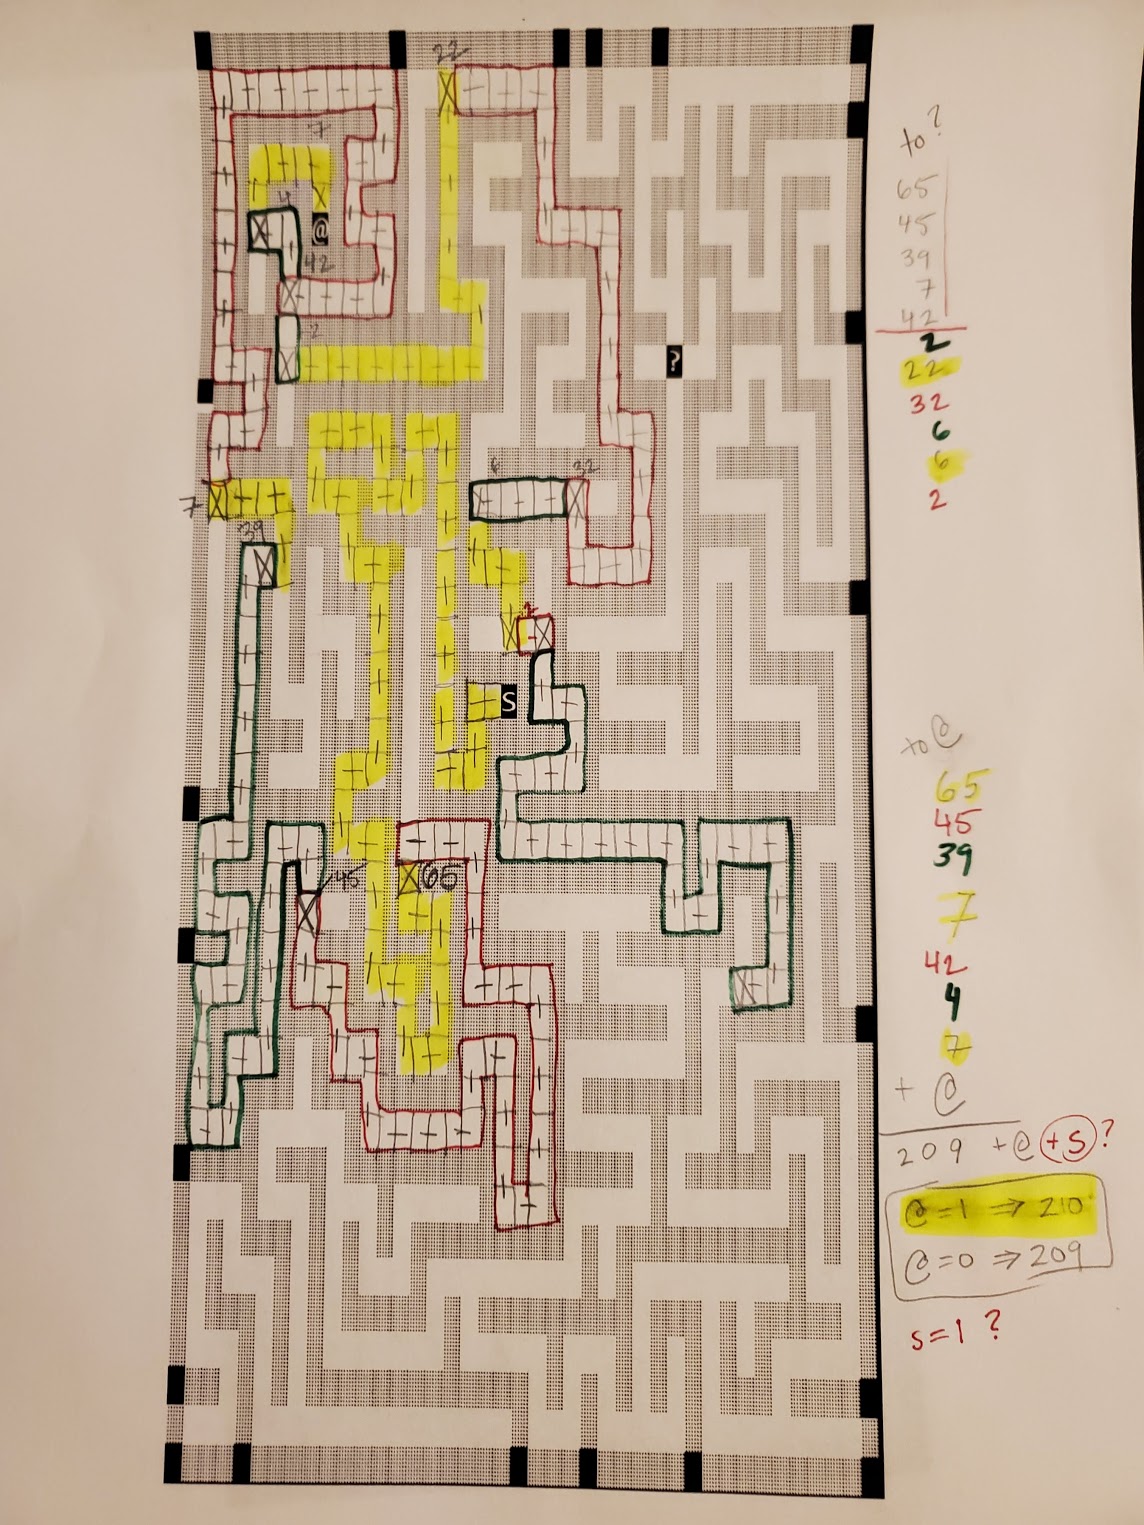 22
7
4
@
42
2
?
6
32
7
39
2
S
45
65
to ?
65
45
39
7
42
2
22
32
6
6
2
to @
65
45
39
7
42
4
7
+ @
209 + @ + S ?
@ = 1 ⇒ 210
@ = 0 ⇒ 209
S = 1 ?